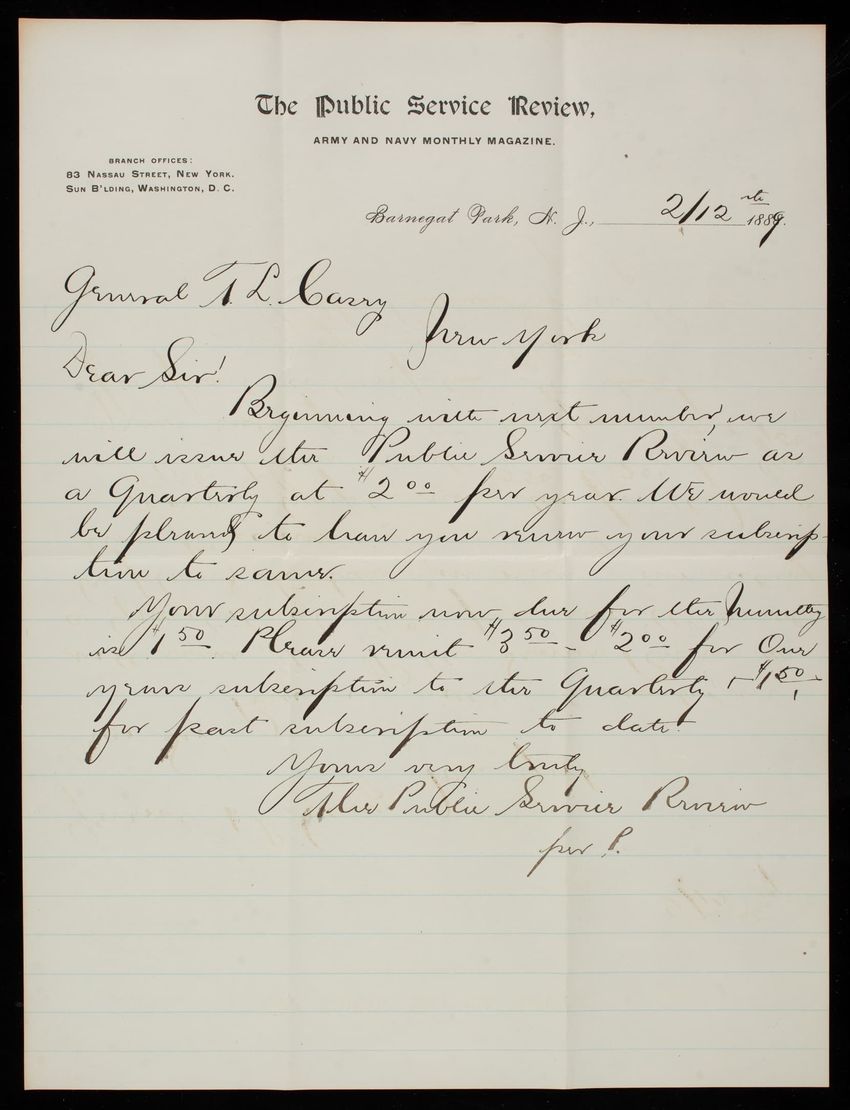 The Public Service Review,
ARMY AND NAVY MONTHLY MAGAZINE.
BRANCH OFFICES:
83 NASSAU STREET, NEW YORK.
SUN B'LDING, WASHINGTON, D. C.
Barnegat Park, N. J., 2/12th 1889.
General T. L. Casey
New York
Dear Sir!
Beginning with next number, we
will issue the Public Service Review as
a Quarterly at $2 00 per year. We would
be pleased to have you renew your subscrip-
tion to same.
Your subscription now due for the Monthly
is $1 50. Please remit $3 50 - $2 00 for One
years subscription to the Quarterly, - $1 50 -
for past subscription to date.
Yours very truly
The Public Service Review
per P.